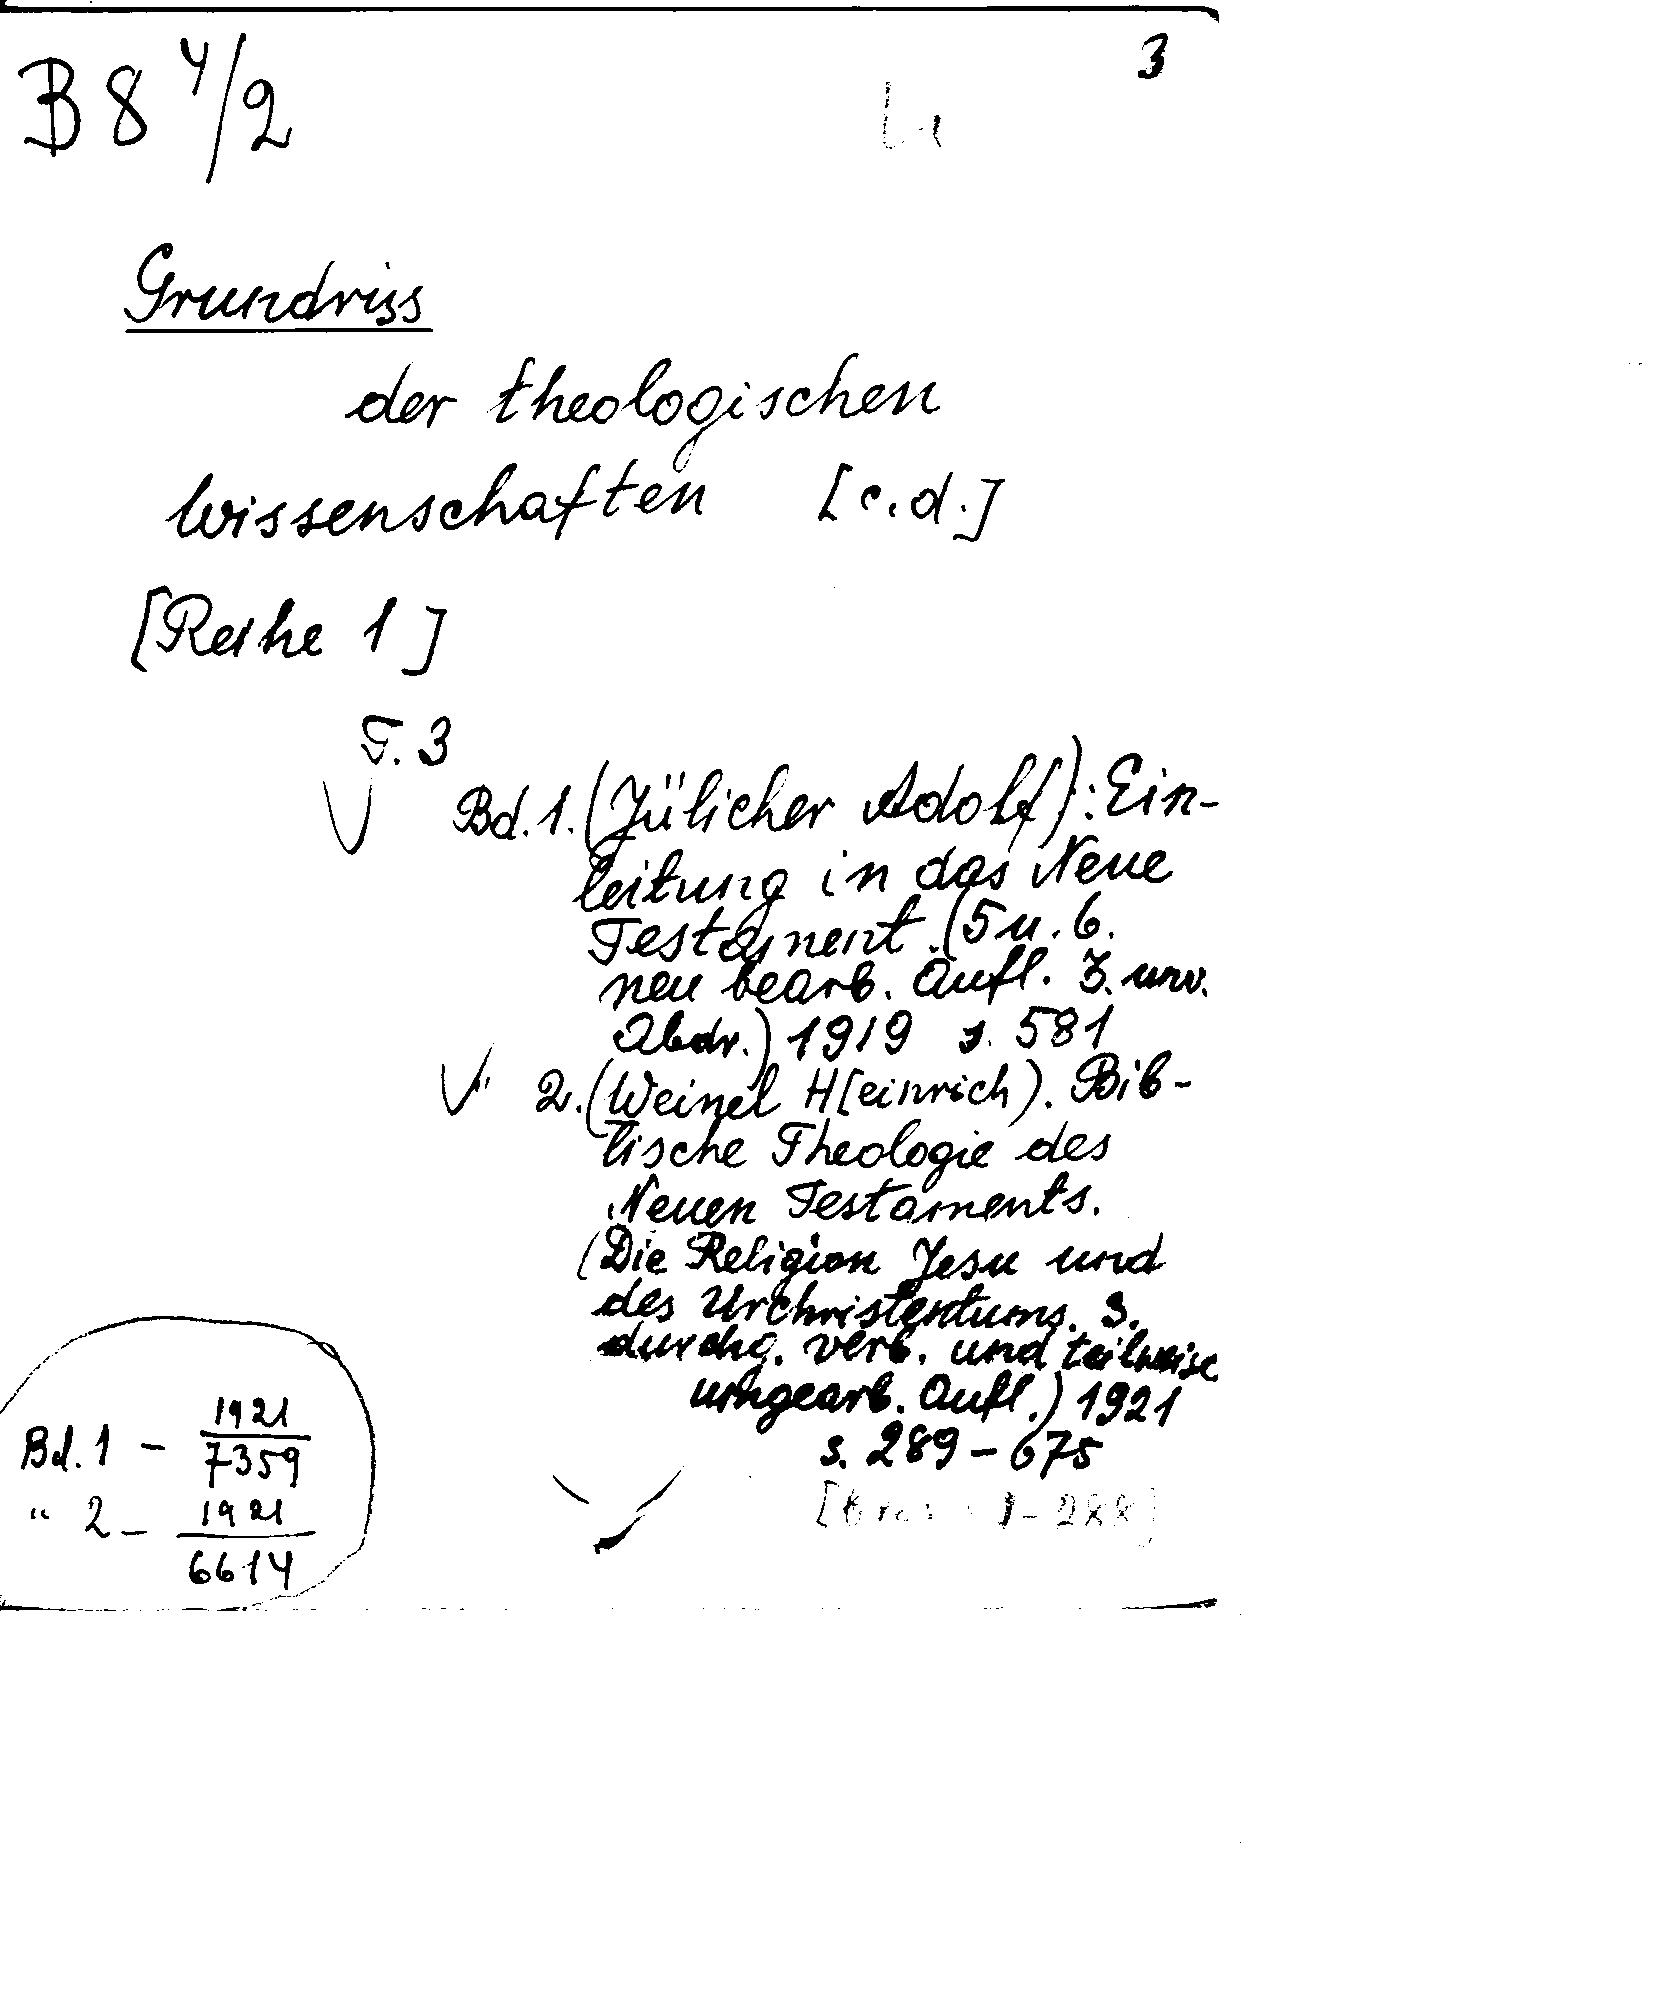 B 8 4/2
3
Grundriss
der theologischen
Wissenschaften [c.d.]
[Reihe 1]
T. 3
Bd. 1. (Jülicher Adolf): Ein-
leitung in das Neue
Testament. (5 u. 6.
neu bearb. Aufl. 3. unv.
Abdr.) 1919 s. 581
2. (Weinel H[einrich). Bib-
lische Theologie des
Neuen Testaments.
(Die Religion Jesu und
des Urchristentums. 3.
durchg. verb. und teilweise
umgearb. Aufl.) 1921
s. 289 - 675
1-288]
Bd. 1 - 1921
7359
" 2 - 1921
6614